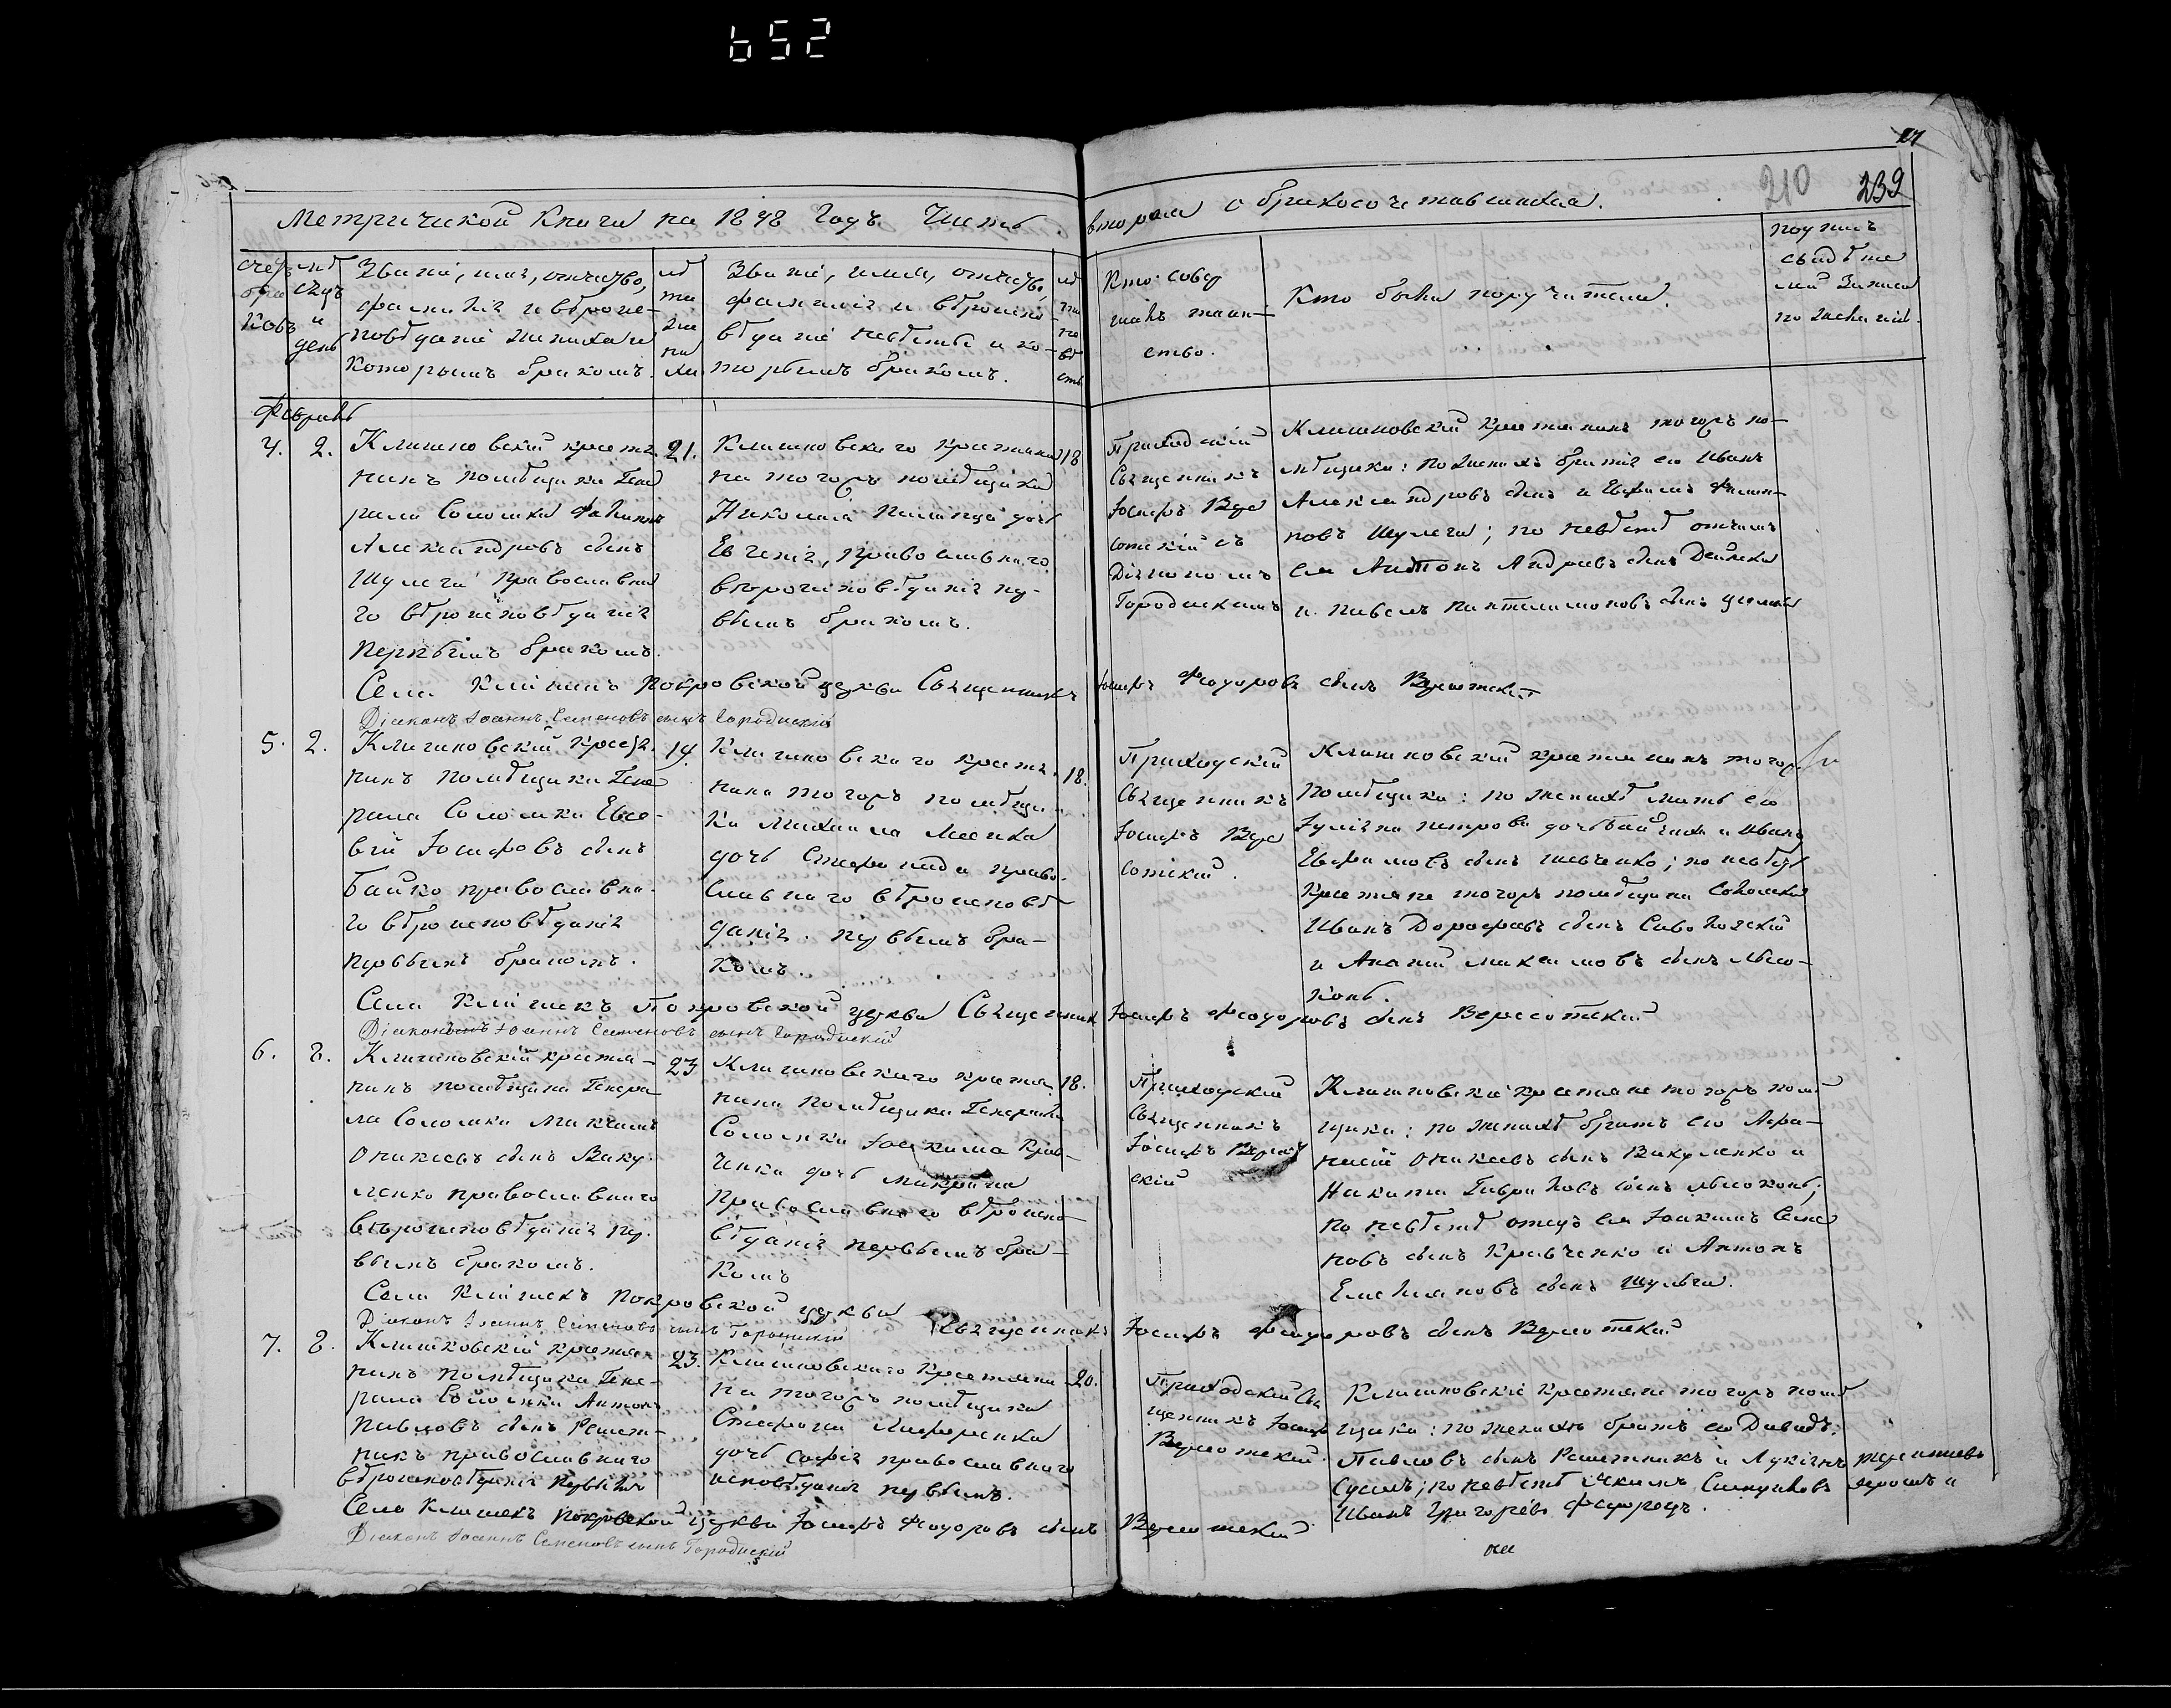 652
27
210 239
Метрической Книги на 1848 Годъ Часть вторая о бракосочетавшихся.
Счетъ браковъ
Мѣсяцъ и день
Званіе, имя, отчество,
фамилія и вѣроис-
повѣданіе жениха и
которымъ бракомъ.
лѣта жениха
Званіе, имя, отчество,
фамилія и вѣроиспо-
вѣданіе невѣсты и ко-
торымъ бракомъ.
лѣта невѣсты
Кто совер
шалъ таин-
ство.
Кто были поручители.
свидѣте
лей записи
по желанію.
Февраль
4. 2.
Клишковскій крестья
нинъ помѣщика Гене
рала Соломки
Александровъ сынъ
Шулега православна
го вѣроисповѣданія
первымъ бракомъ.
21.
Клишковскаго крестьяни
на тогожъ помѣщика
Николая дочь
Евгенія, православнаго
вѣроисповѣданія пер-
вымъ бракомъ.
18
Приходскій
Священникъ
Іосифъ Вере
сотскій съ
Діакономъ
Городискимъ
Клишковскій крестьянинъ тогожъ по-
мѣщика: по женихѣ братія его Иванъ
Александровъ сынъ и Ефимъ
повъ Шулега; по невѣстѣ отчимъ
ея Антонъ Андреевъ сынъ Дейнека
и Павелъ Пантелимоновъ сынъ
Села Клишекъ Покровской церкви Священникъ Іосифъ Феодоровъ сынъ Вересотскій
Діаконъ Іоаннъ Семеновъ сынъ Городискій
5. 2.
Клишковскій крестья
нинъ помѣщика Гене
рала Соломки Евсе-
вій Іосифовъ сынъ
Байко православна-
го вѣроисповѣданія
первымъ бракомъ.
19.
Клишковскаго крестья
нина тогожъ помѣщи-
ка Михаила
дочь Стефанида право-
славнаго вѣроисповѣ
данія. первымъ бра-
комъ.
18.
Приходскій
Священникъ
Іосифъ Вере
сотскій.
Клишковскій крестьянинъ тогожъ
помѣщика: по женихѣ мать его
Іуліана Петрова дочь и Иванъ
Ефимовъ сынъ Шевченко; по невѣстѣ
крестьяне тогожъ помѣщика Соломки
Иванъ Дорофеевъ сынъ
и Ананій Максимовъ сынъ Лысо-
конь.
Села Клишекъ Покровской церкви Священникъ Іосифъ Феодоровъ сынъ Вересотскій
Діаконъ Іоаннъ Семеновъ сынъ Городискій
6. 8.
Клишковскій крестья-
нинъ помѣщика Генера
ла Соломки Максимъ
Оникіевъ сынъ Ваку-
ленко православнаго
вѣроисповѣданія пер-
вымъ бракомъ.
23
Клишковскаго крестья
нина помѣщика Генерала
Соломки Іоакима Крав-
ченка дочь Макрина
православнаго вѣроиспо-
вѣданія первымъ бра-
комъ
18.
Приходскій
Священникъ
Іосифъ Вересот
скій
Клишковскіе крестьяне тогожъ помѣ
щика: по женихѣ братъ его Афа-
насій Оникіевъ сынъ Вакуленко и
Никита Гавриловъ сынъ Лысоконь;
по невѣстѣ отецъ ея Іоакимъ Семе
новъ сынъ Кравченко и Антонъ
Емельяновъ сынъ Шульга.
Села Клишекъ Покровской церкви Священникъ Іосифъ Феодоровъ сынъ Вересотскій
Діаконъ Іоаннъ Семеновъ сынъ Городискій
7. 8.
Клишковскій крестья-
нинъ помѣщика Гене-
рала Соломки Антонъ
Павловъ сынъ Решет-
никъ православнаго
вѣроисповѣданія первымъ
23.
Клишковскаго крестьяни
на тогожъ помѣщика
Стефана
дочь Софія православнаго
исповѣданія первымъ.
20.
Приходскій Свя
щенникъ Іосифъ
Вересотскій.
Клишковскіе крестьяне тогожъ помѣ
щика: по женихѣ братъ его Давидъ
Павловъ сынъ Решетникъ и Лукіанъ Терентіевъ
по невѣстѣ
Иванъ Григорьевъ
Села Клишекъ Покровской церкви Іосифъ Феодоровъ сынъ Вересотскій
Діаконъ Іоаннъ Семеновъ сынъ Городискій